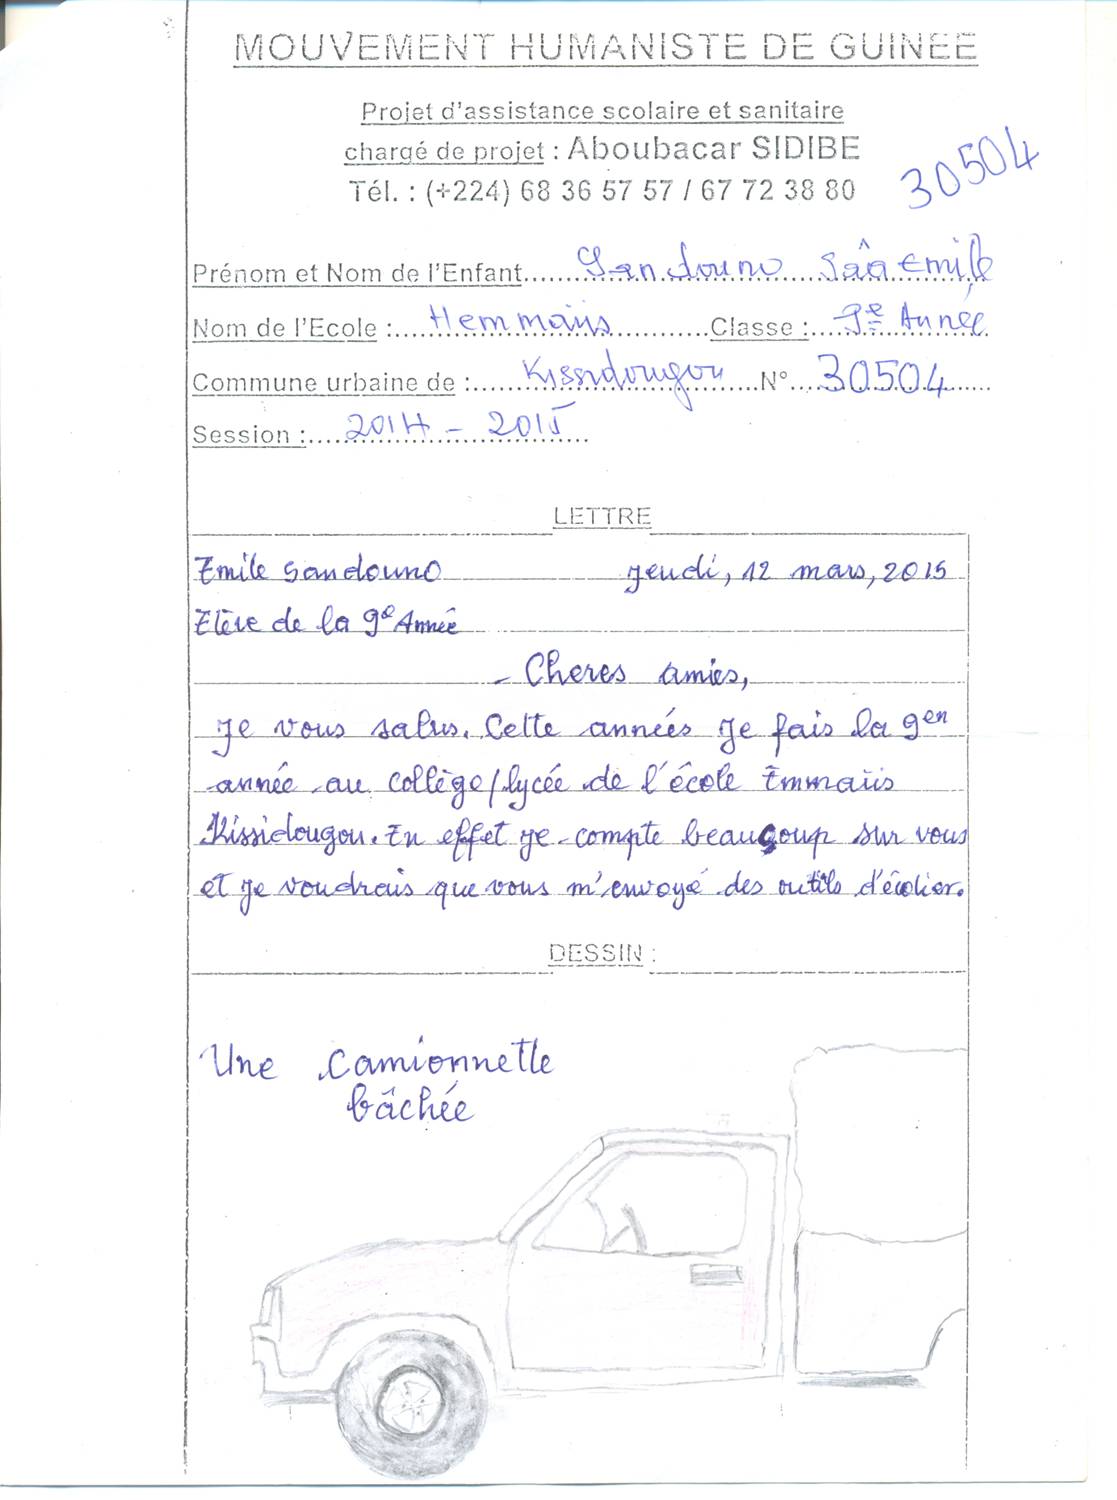 MOUVEMENT HUMANISTE DE GUINEE
Projet d'assistance scolaire et sanitaire
chargé de projet : Aboubacar SIDIBE
Tél. : (+224) 68 36 57 57 / 67 72 38 80
30504
Prénom et Nom de l'Enfant......Sandouno Sâa Emile
Nom de l'Ecole :....Hemmaüs............Classe :...9e Année
Commune urbaine de :......Kissidougou....N°...30504......
Session :....2014 - 2015
LETTRE
Emile Sandouno jeudi, 12 mars, 2015
Elève de la 9e Année
- Cheres amies,
je vous salus. Cette années je fais la 9en
année au collège/lycée de l'école Emmaüs
Kissidougou. En effet je compte beaucoup sur vous
et je voudrais que vous m'envoyé des outils d'écolier.
DESSIN :
Une camionnette
bâchée